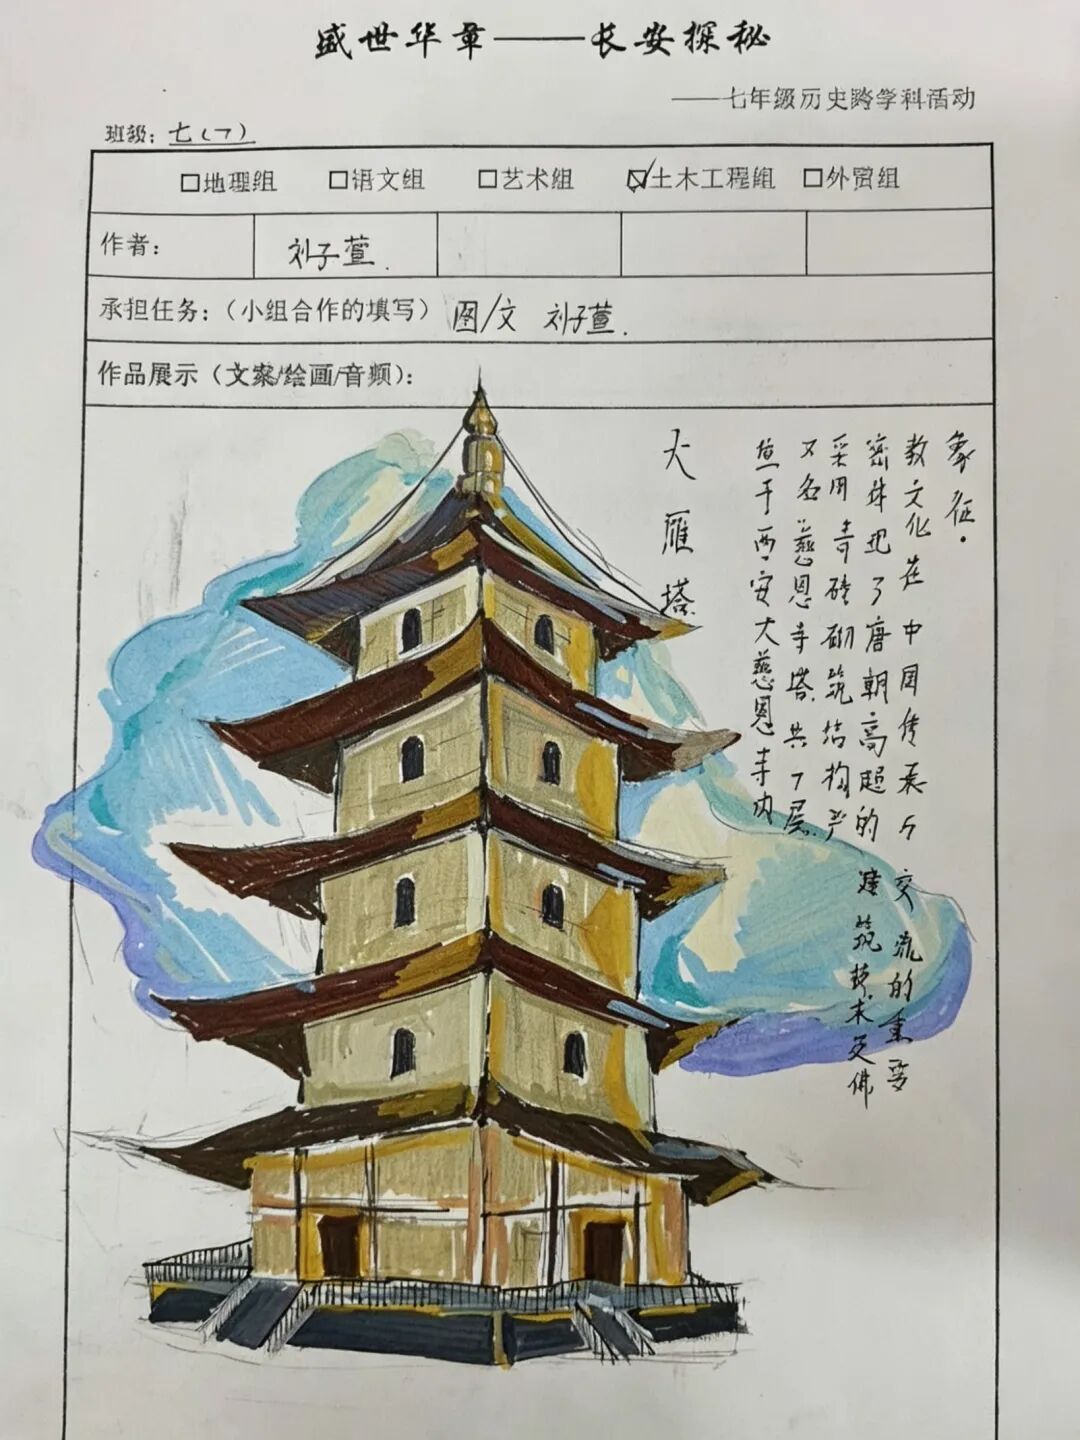 盛世华章——长安探秘
——七年级历史跨学科活动
班级：七（7）
□地理组 □语文组 □艺术组 ☑土木工程组 □外贸组
作者： 刘子萱.
承担任务：（小组合作的填写）图/文 刘子萱.
作品展示（文案/绘画/音频）：
大雁塔.
位于西安大慈恩寺内
又名慈恩寺塔共7层.
采用青砖砌筑结构严
密体现了唐朝高超的建筑技术及佛
教文化在中国传来与交流的重要
象征.